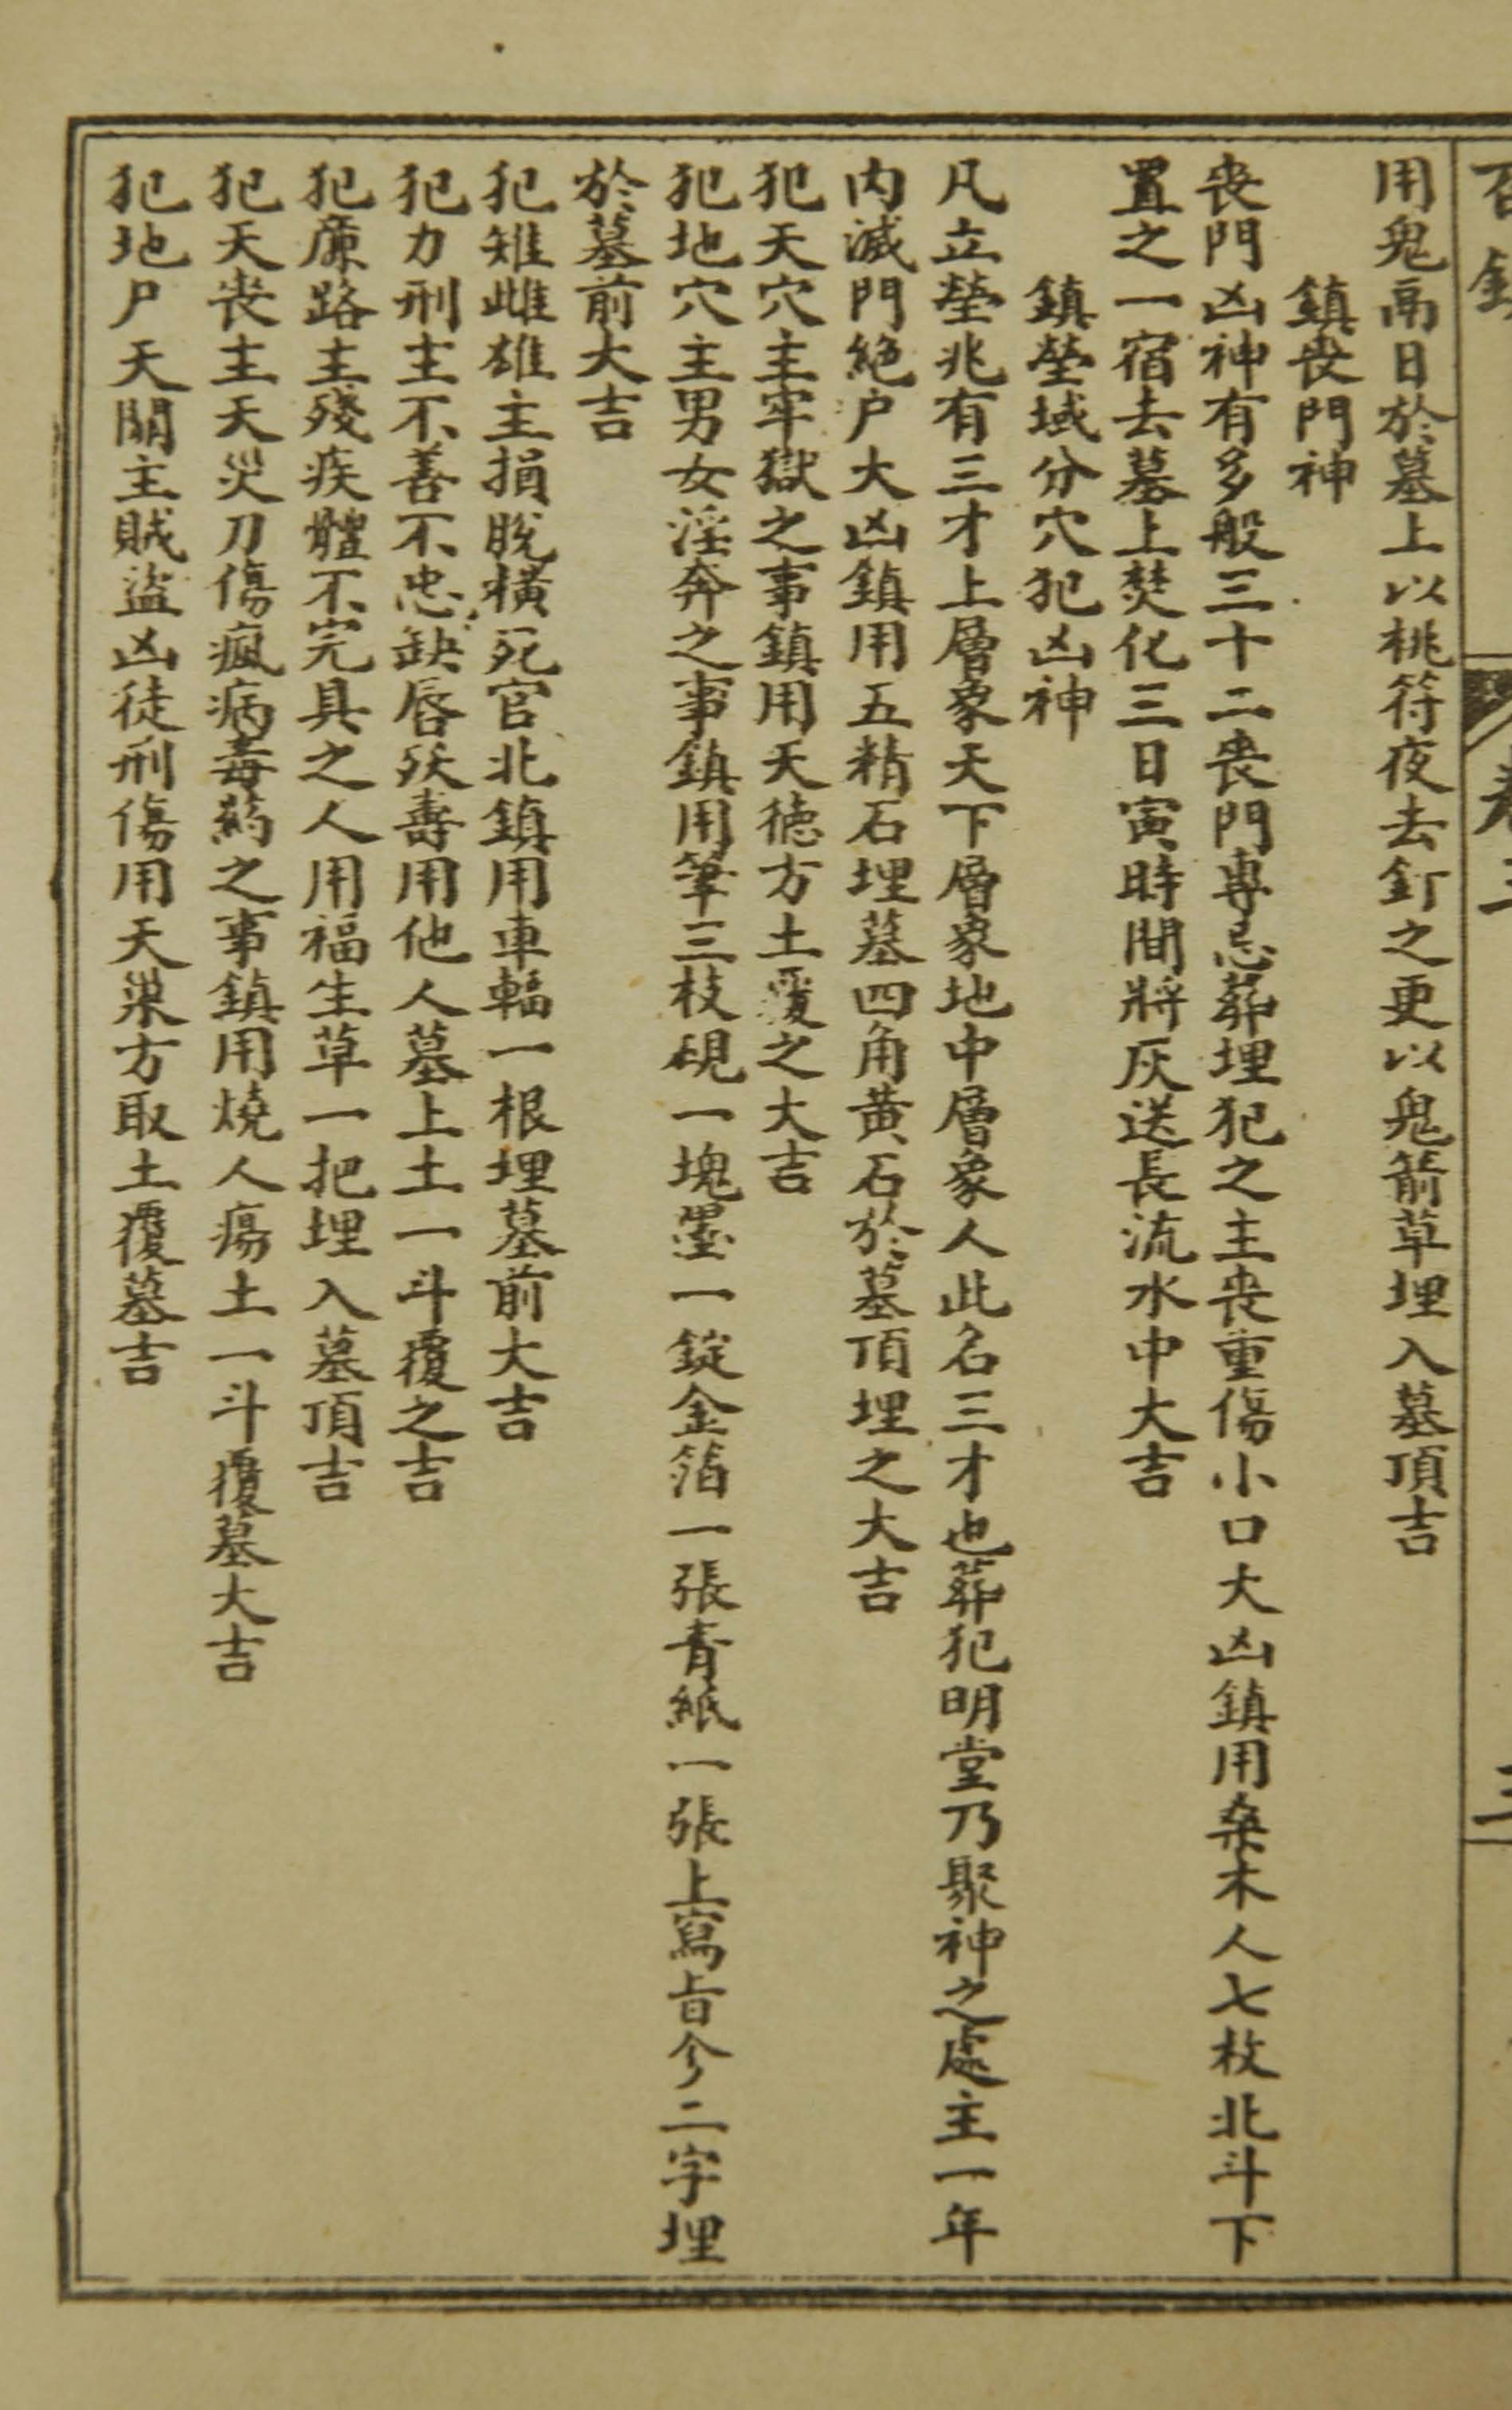 用鬼鬲日於墓上以桃符夜去釘之更以鬼箭草埋入墓頂吉
鎮丧門神
丧門凶神有多般三十二丧門專忌葬埋犯之主丧重傷小口大凶鎮用桑木人七枚北斗下
置之一宿去墓上焚化三日寅時間將灰送長流水中大吉
鎮塋域分穴犯凶神
凡立塋兆有三才上層象天下層象地中層象人此名三才也葬犯明堂乃聚神之處主一年
内滅門絕户大凶鎮用五精石埋墓四角黃石於墓頂埋之大吉
犯天穴主牢獄之事鎮用天德方土覆之大吉
犯地穴主男女淫奔之事鎮用筆三枝硯一塊墨一錠金箔一張青紙一張上寫㫖今二字埋
於墓前大吉
犯雉雌雄主損脫橫死官北鎮用車輻一根埋墓前大吉
犯力刑主不善不忠缺唇殀壽用他人墓上土一斗覆之吉
犯廉路主殘疾體不完具之人用福生草一把埋入墓頂吉
犯天丧主天災刀傷瘋病毒药之事鎮用燒人瘍土一斗覆墓大吉
犯地尸天關主賊盜凶徒刑傷用天巢方取土覆墓吉